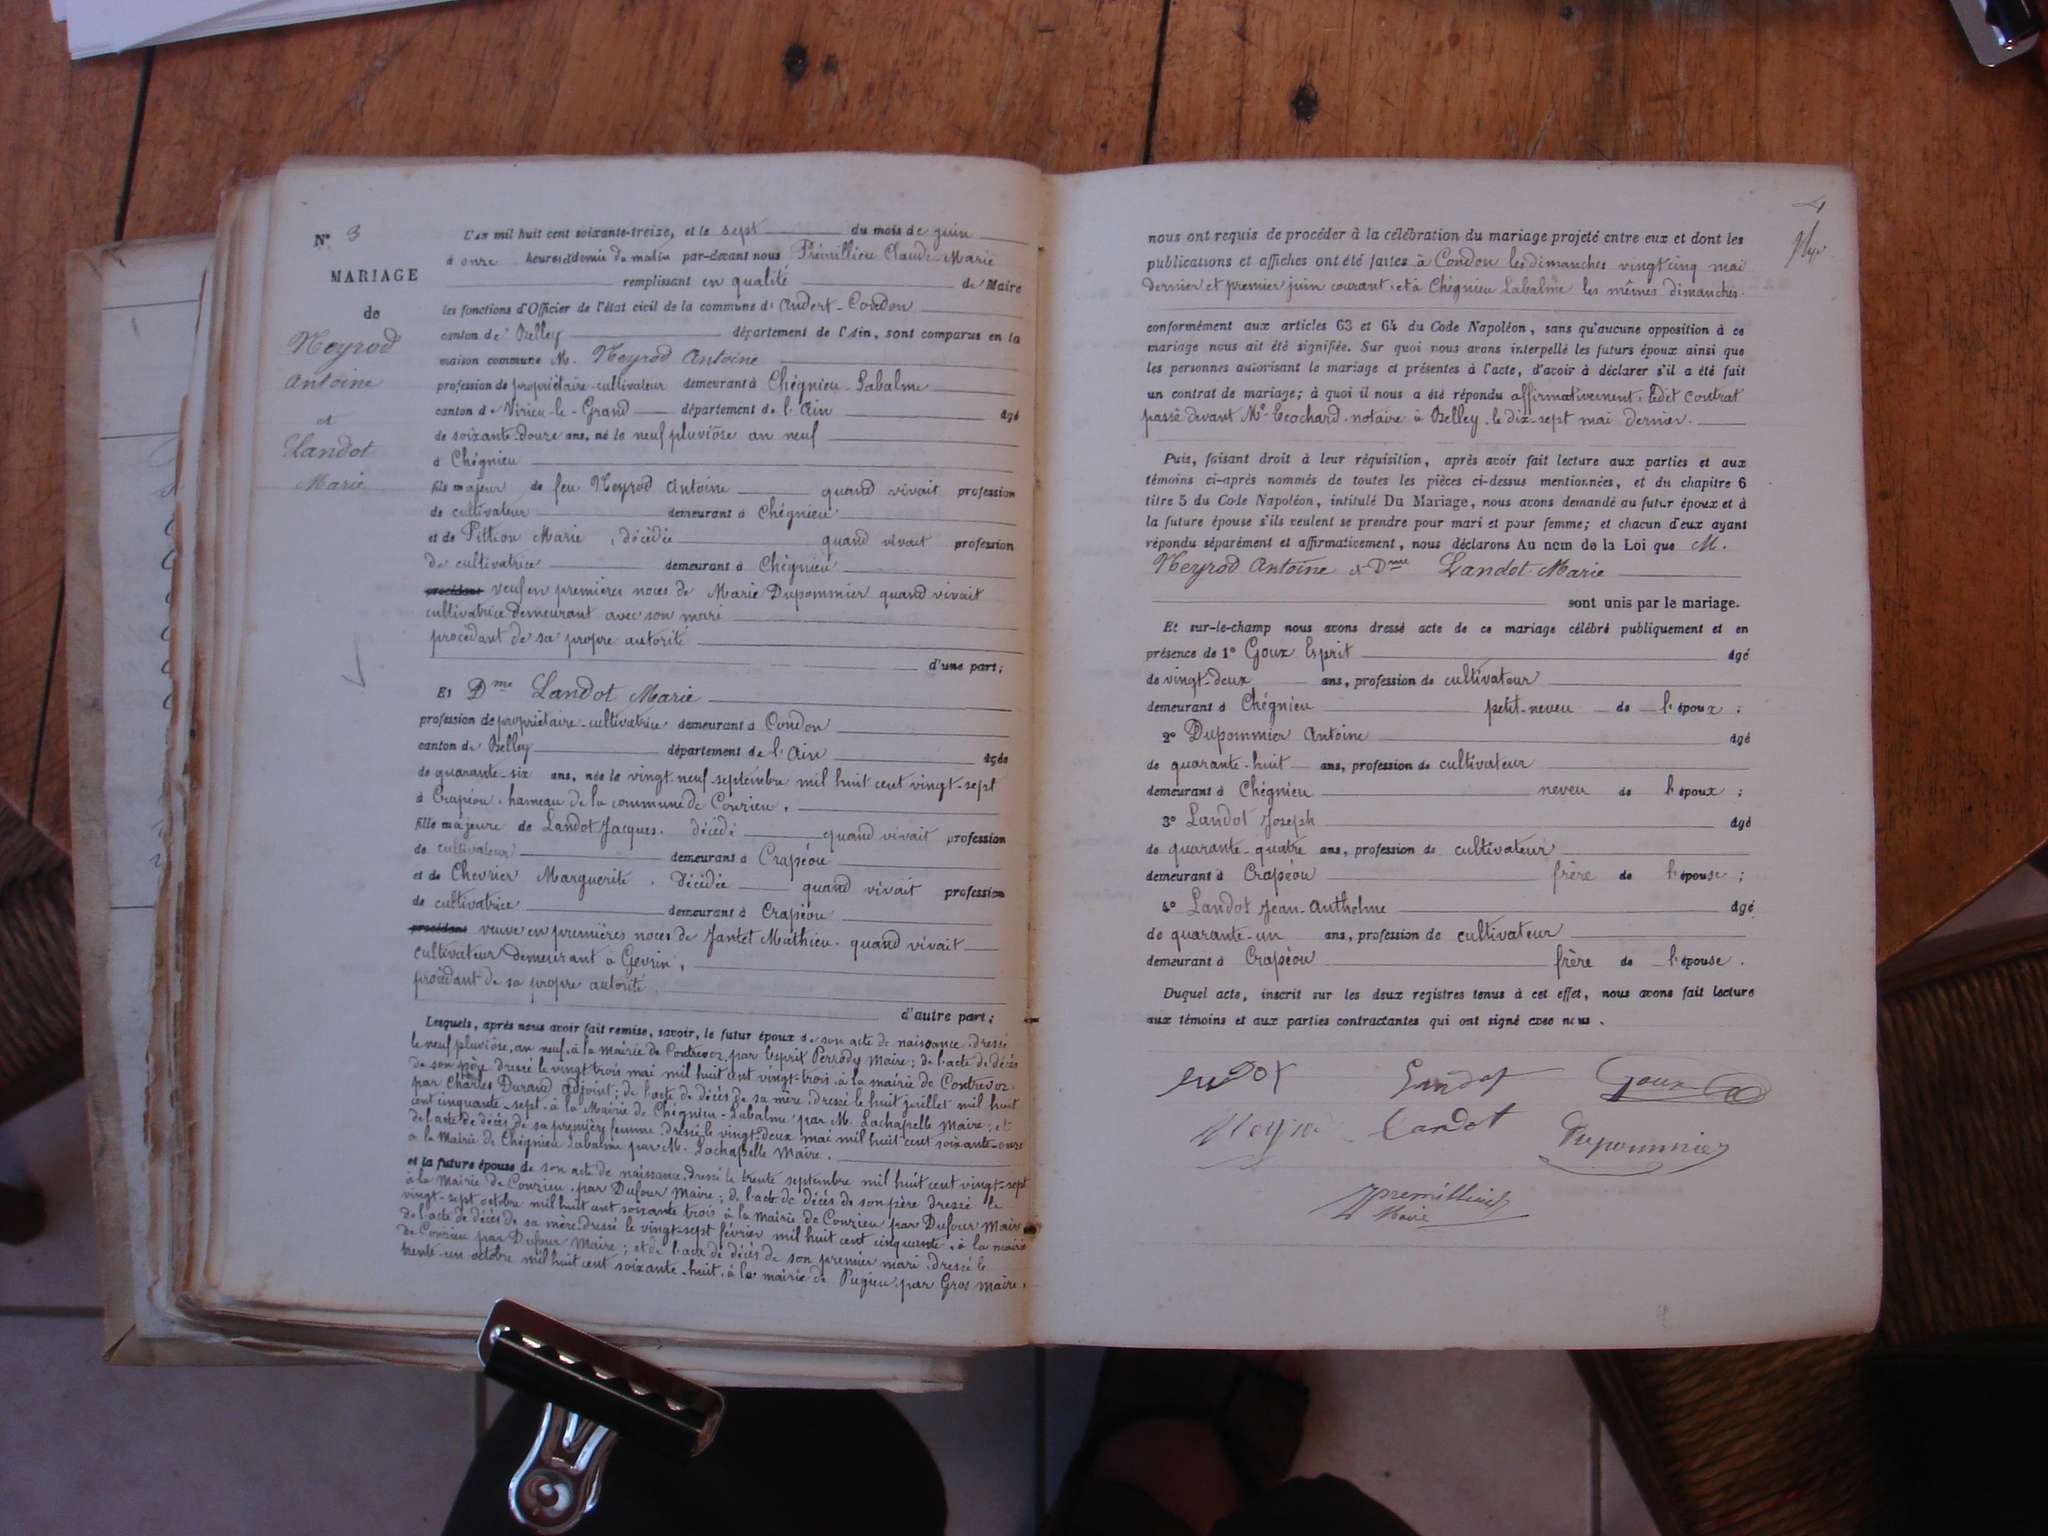 N° 3
MARIAGE
de
Neyrod
Antoine
et
Landot
Marie
L'an mil huit cent soixante-treize, et le sept du mois de juin
à onze heures et demie du matin par-devant nous Prémillieu Claude-Marie
remplissant en qualité de Maire
les fonctions d'Officier de l'état civil de la commune d'Andert-Condon
canton de Belley département de l'Ain, sont comparus en la
maison commune M. Neyrod Antoine
profession de propriétaire-cultivateur demeurant à Chégnieu-Labalme
canton de Virieu-le-Grand département de l'Ain âgé
de soixante-douze ans, né le neuf pluviôse an neuf
à Chégnieu
fils majeur de feu Neyrod Antoine quand vivait profession
de cultivateur demeurant à Chégnieu
et de Pittion Marie, décédée quand vivait profession
de cultivatrice demeurant à Chégnieu
procédant veuf en premières noces de Marie Dupommier quand vivait
cultivatrice demeurant avec son mari
procédant de sa propre autorité
d'une part;
Et Dme Landot Marie
profession de propriétaire-cultivatrice demeurant à Condon
canton de Belley département de l'Ain âgée
de quarante-six ans, née le vingt-neuf septembre mil huit cent vingt-sept
à Crapéou, hameau de la commune de Conzieu,
fille majeure de Landot Jacques, décédé quand vivait profession
de cultivateur demeurant à Crapéou
et de Chevrier Marguerite, décédée quand vivait profession
de cultivatrice demeurant à Crapéou
procédant veuve en premières noces de Jantet Mathieu, quand vivait
cultivateur demeurant à Gevrin,
procédant de sa propre autorité
d'autre part;
Lesquels, après nous avoir fait remise, savoir, le futur époux de son acte de naissance dressé
le neuf pluviôse, an neuf, à la mairie de Contrevoz, par Esprit Perrody Maire; de l'acte de décès
de son père dressé le vingt trois mai mil huit cent vingt-trois à la mairie de Contrevoz
par Charles Durand adjoint; de l'acte de décès de sa mère dressé le huit juillet mil huit
cent cinquante-sept à la Mairie de Chégnieu-Labalme par M. Lachapelle Maire; et
de l'acte de décès de sa première femme dressé le vingt-deux mai mil huit cent soixante-onze
à la Mairie de Chégnieu Labalme par M. Lachapelle Maire.
et la future épouse de son acte de naissance, dressé le trente septembre mil huit cent vingt-sept
à la Mairie de Conzieu, par Dufour Maire; de l'acte de décès de son père dressé le
vingt-sept octobre mil huit cent soixante trois à la Mairie de Conzieu par Dufour Maire
de l'acte de décès de sa mère dressé le vingt-sept février mil huit cent cinquante, à la mairie
de Conzieu par Dufour Maire; et de l'acte de décès de son premier mari dressé le
trente-un octobre mil huit cent soixante-huit, à la mairie de Pugieu, par Gros maire,
4
nous ont requis de procéder à la célébration du mariage projeté entre eux et dont les
publications et affiches ont été faites à Condon les dimanches vingt cinq mai
dernier et premier juin courant, et à Chégnieu Labalme les mêmes dimanches.
conformément aux articles 63 et 64 du Code Napoléon, sans qu'aucune opposition à ce
mariage nous ait été signifiée. Sur quoi nous avons interpellé les futurs époux ainsi que
les personnes autorisant le mariage et présentes à l'acte, d'avoir à déclarer s'il a été fait
un contrat de mariage; à quoi il nous a été répondu affirmativement. Ledit contrat
passé devant Me Ecochard, notaire à Belley, le dix-sept mai dernier.
Puis, faisant droit à leur réquisition, après avoir fait lecture aux parties et aux
témoins ci-après nommés de toutes les pièces ci-dessus mentionnées, et du chapitre 6
titre 5 du Code Napoléon, intitulé Du Mariage, nous avons demandé au futur époux et à
la future épouse s'ils veulent se prendre pour mari et pour femme; et chacun d'eux ayant
répondu séparément et affirmativement, nous déclarons Au nom de la Loi que M.
Neyrod Antoine & Dme Landot Marie
sont unis par le mariage.
Et sur-le-champ nous avons dressé acte de ce mariage célébré publiquement et en
présence de 1° Goux Esprit âgé
de vingt-deux ans, profession de cultivateur
demeurant à Chégnieu petit-neveu de l'époux;
2° Dupommier Antoine âgé
de quarante-huit ans, profession de cultivateur
demeurant à Chégnieu neveu de l'époux;
3° Landot Joseph âgé
de quarante-quatre ans, profession de cultivateur
demeurant à Crapéou frère de l'épouse;
4° Landot Jean-Anthelme âgé
de quarante-un ans, profession de cultivateur
demeurant à Crapéou frère de l'épouse.
Duquel acte, inscrit sur les deux registres tenus à cet effet, nous avons fait lecture
aux témoins et aux parties contractantes qui ont signé avec nous.
Landot Goux
Landot Dupommier
Premillieu
Maire